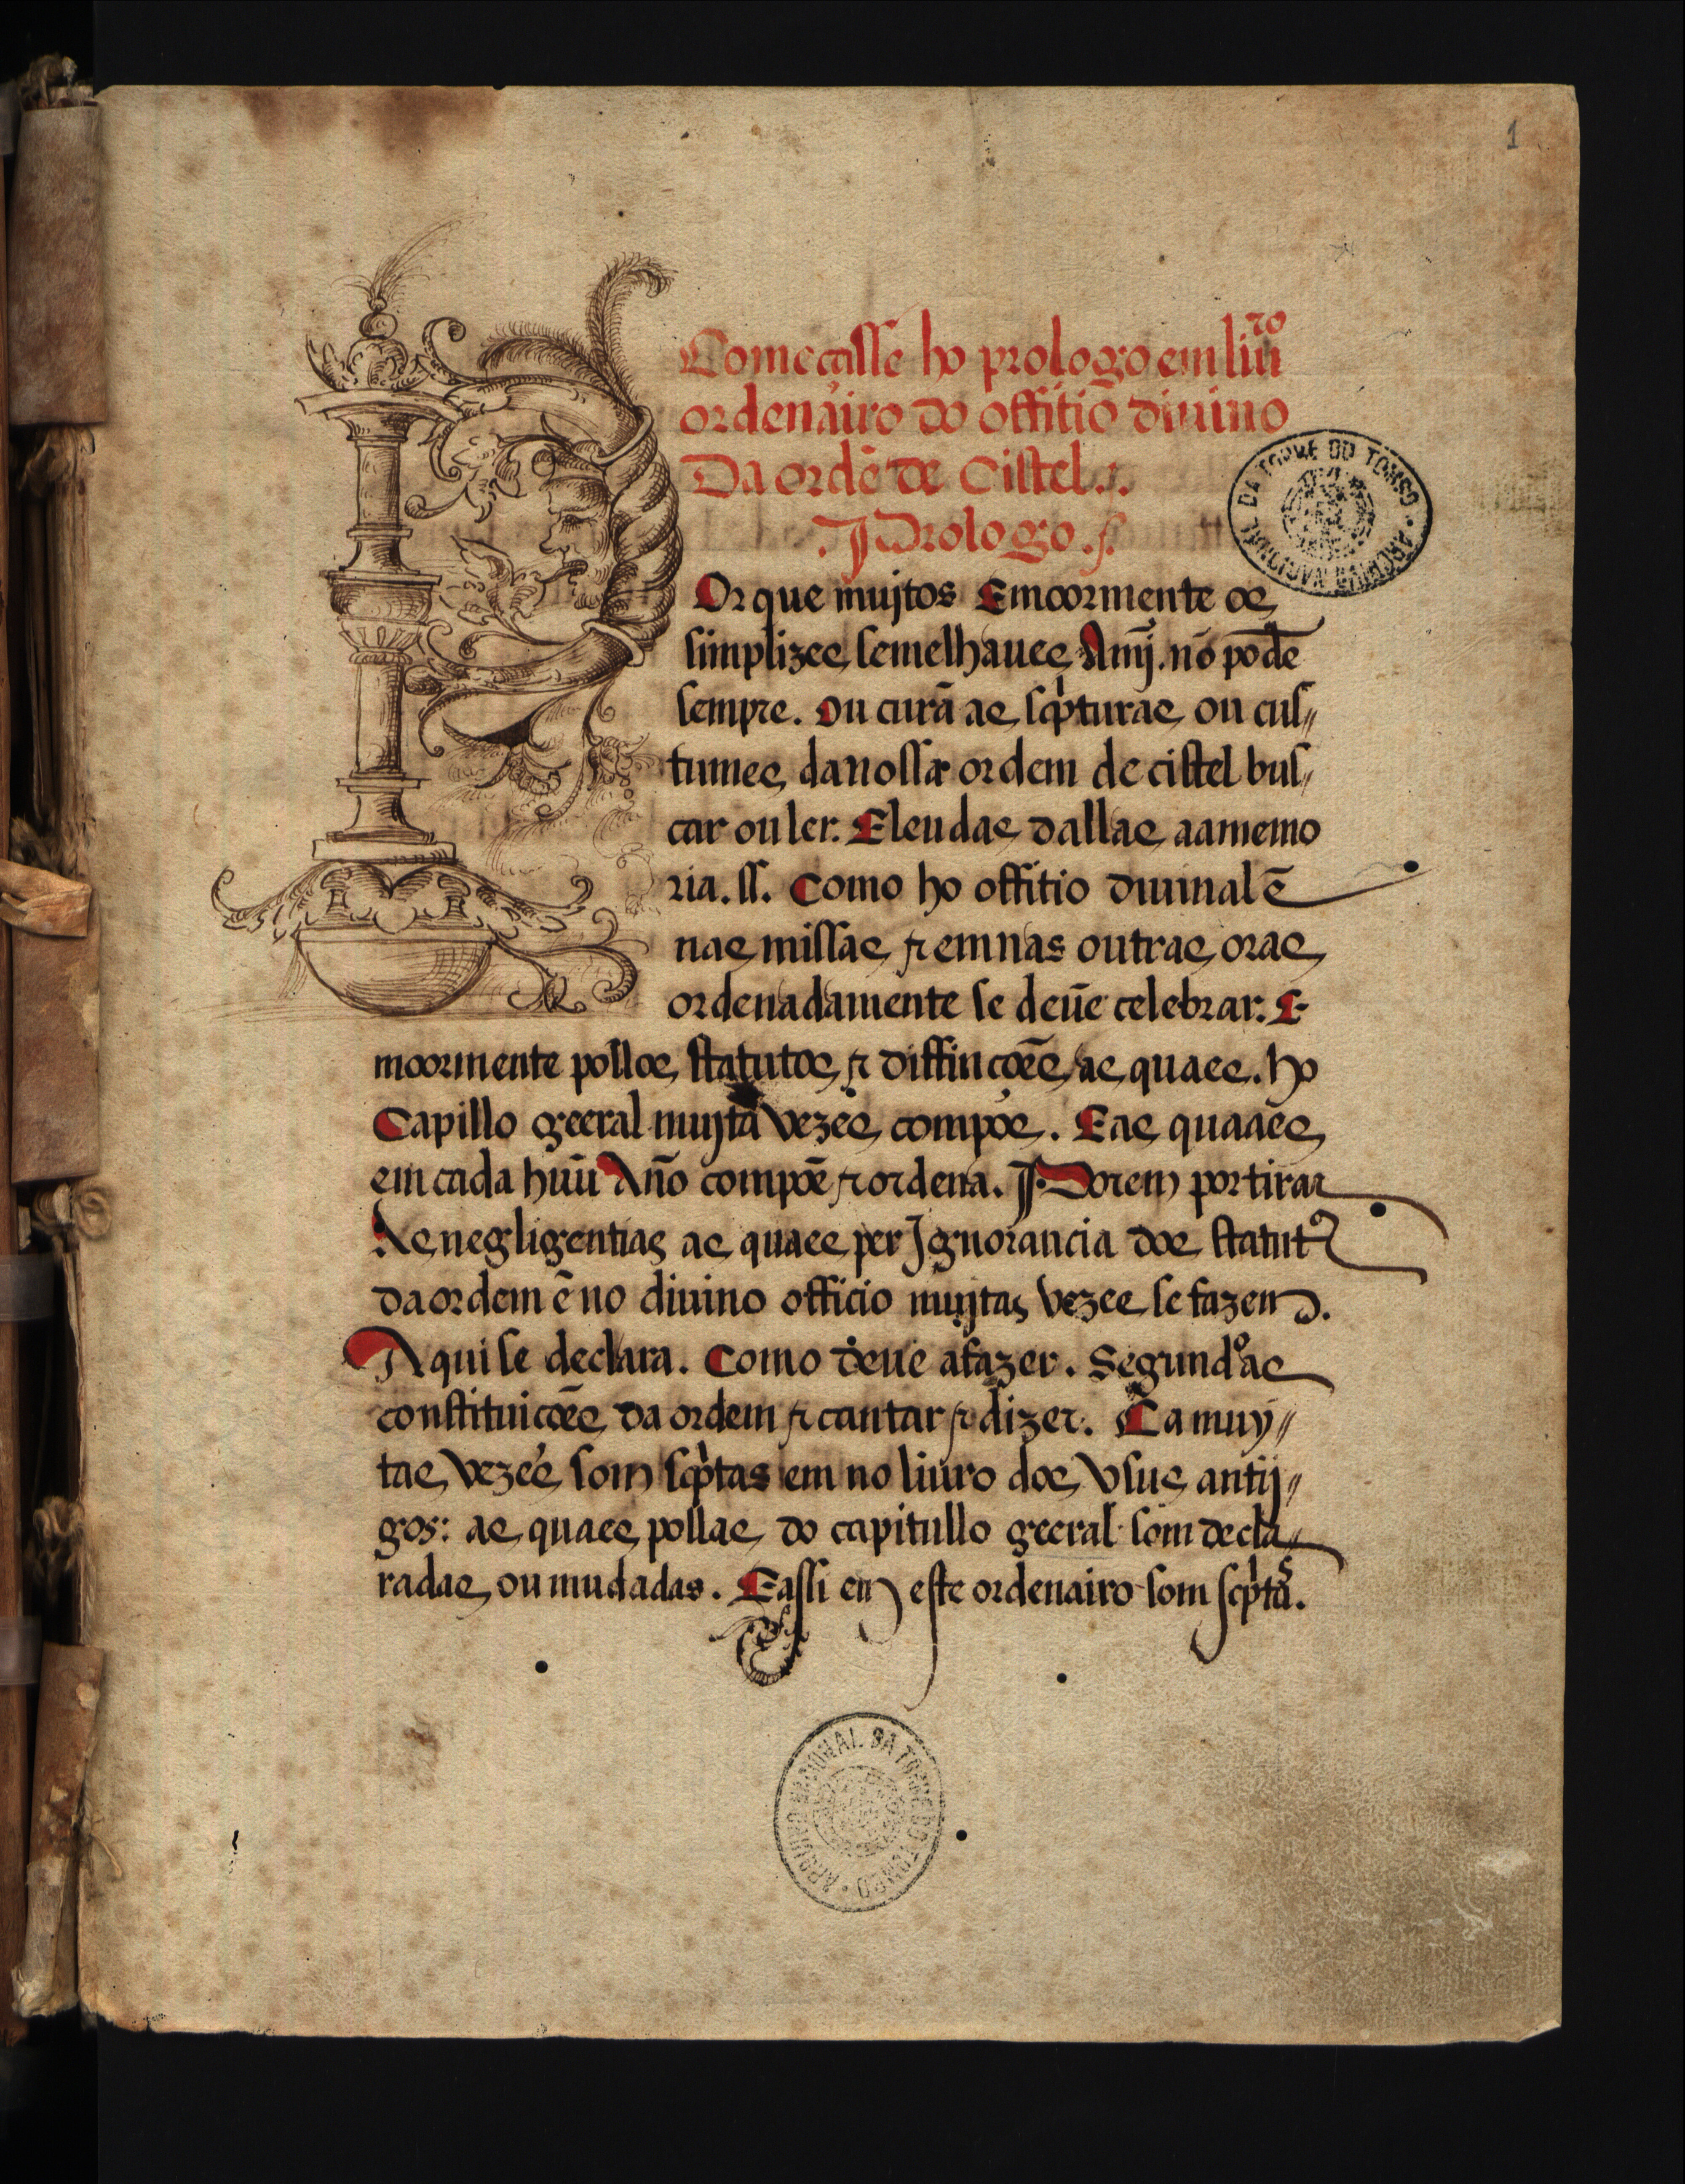 1
Comecasse ho prologo em liuro
ordenairo do offitio diuino
Da ordẽ de Cistel.
Prologo.
POr que muijtos Emoormente os
simplizes semelhaues Amj. nõ podẽ
sempre. Ou curã as scpturas ou cus„
tumes da nossa ordem de cistel bus„
car ou ler. Eleudas dallas aamemo
ria. ss. Como ho offitio diuinal ẽ
nas missas & em nas outras oras
ordenadamente se deuẽ celebrar. E
moormente pollos statutos & diffinçoẽs as quaes. ho
Capillo geeral muijta vezes compoẽ. Eas quaães
em cada huũ Año compoẽ & ordena. Porem por tirar
As negligentias as quaes per Jgnorancia dos statutos
da ordem ẽ no diuino officio muijtas vezes se fazem.
Aqui se declara. Como deue a fazer. Segundo as
constituiçoẽs da ordem & cantar & dizer. Ca muy„
tas vezes som scptas em no liuro dos vsus antij„
gos: as quaes pollas do capitullo geeral som decla„
radas, ou mudadas. E assi em este ordenairo som scptas.
ARQUIVO NACIONAL DA TORRE DO TOMBO
ARQUIVO NACIONAL DA TORRE DO TOMBO